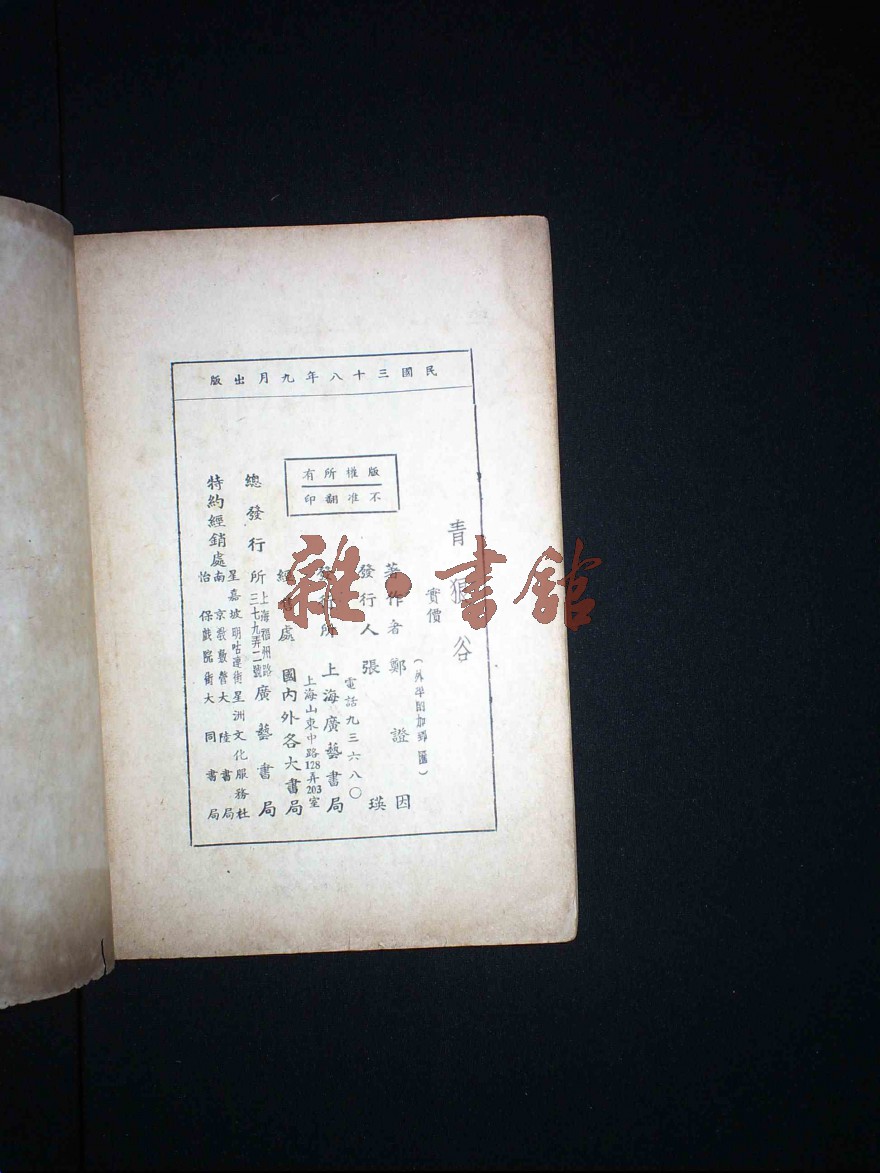 民國三十八年九月出版
版權所有
不准翻印
青狼谷
實價
(外埠酌加郵匯)
著作者 鄭證因
發行人 張瑛
電話九三六八〇
發行所 上海廣藝書局
上海山東中路128弄203室
經售處 國內外各大書局
總發行所 廣藝書局
上海福州路
三七九弄二號
特約經銷處
星嘉坡明咕連街星洲文化服務社
南京敷敷營大陸書局
怡保戲院街大同書局
雜·書館